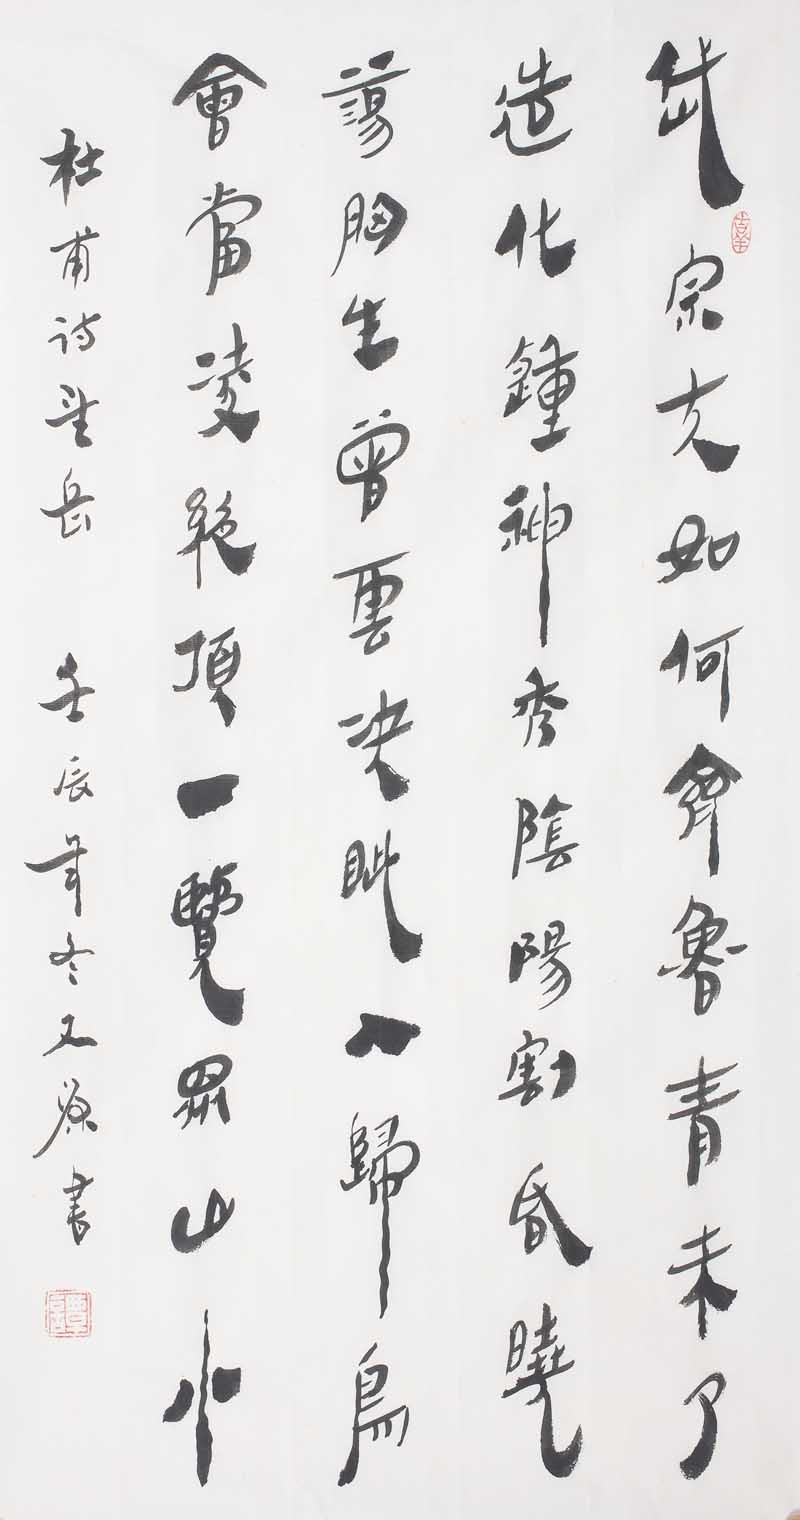 岱宗夫如何齊魯青未了
造化鍾神秀陰陽割昏曉
蕩胸生曾雲決眦入歸鳥
會當凌絕頂一覽眾山小
杜甫诗望岳 壬辰年冬又源書